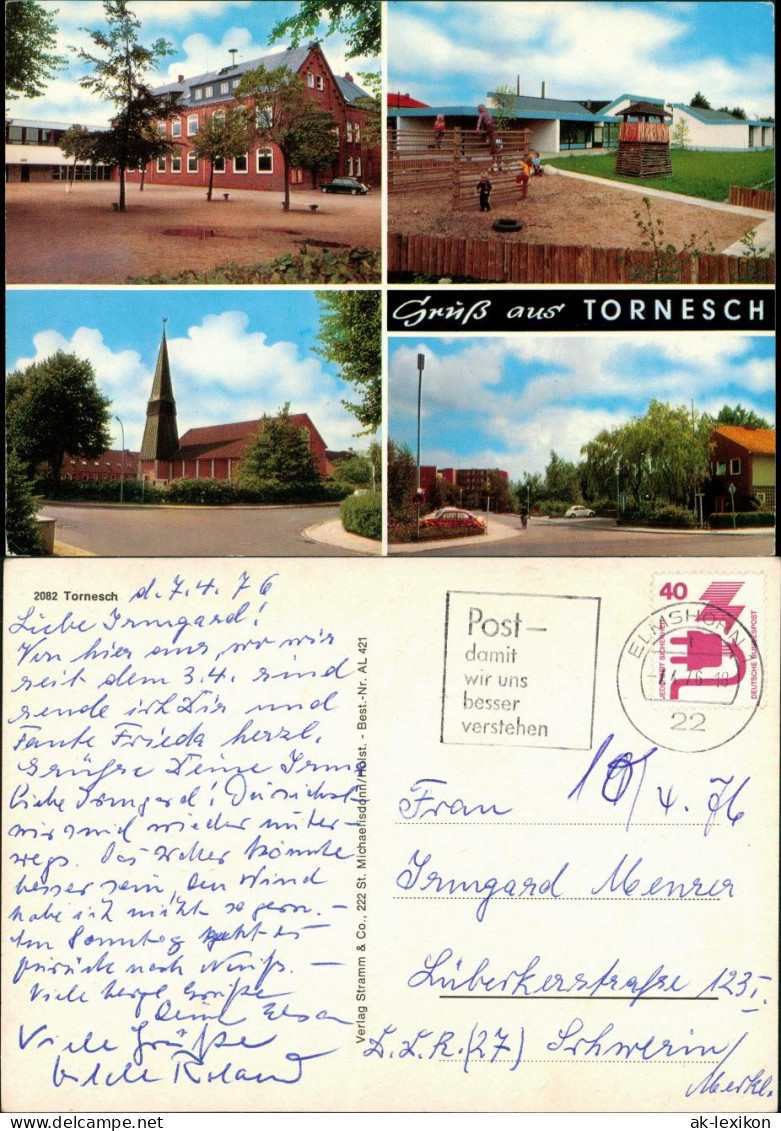 Gruß aus TORNESCH
2082 Tornesch
d. 7.4.76
Liebe Irmgard!
Von hier aus, wo wir
seit dem 3.4. sind
sende ich Dir und
Tante Frieda herzl.
Grüße Deine Irm
Liebe Irmgard! Du siehst
wir sind wieder unter-
wegs. Das Wetter könnte
besser sein, den Wind
habe ich nicht so gern. –
Am Sonntag geht es
zurück nach Neuß. –
Viele herzl. Grüße
Deine
Viele Grüße
Roland
Verlag Stramm & Co., 222 St. Michaelisdonn/Holst. - Best.-Nr. AL 421
Post–
damit
wir uns
besser
verstehen
ELMSHORN
7.4.76-18
22
40
JEDERZEIT SICHERHEIT
DEUTSCHE BUNDESPOST
10/4.76
Frau
Irmgard Menzer
Lübeckerstraße 123 I.
(27) Schwerin/
Meckl.
ak-lexikon